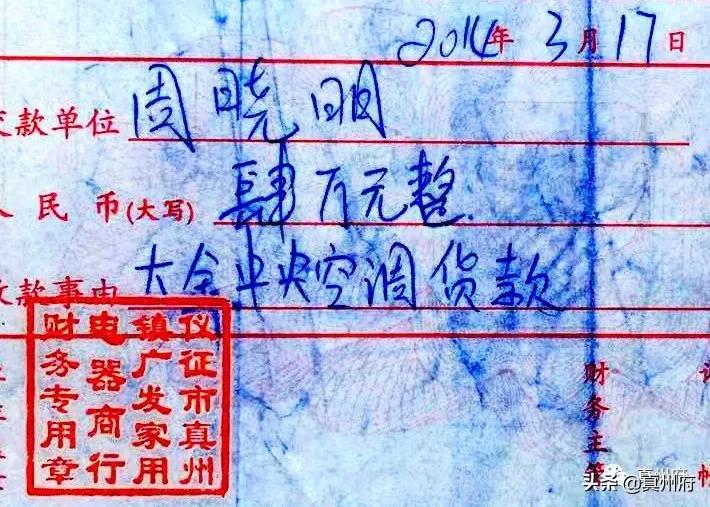 2014年3月17日
交款单位 周晓明
人民币(大写) 肆万元整
收款事由 大金中央空调货款
仪征市真州
镇广发家用
电器商行
财务专用章
财务主管
头条 @真州府
真州府